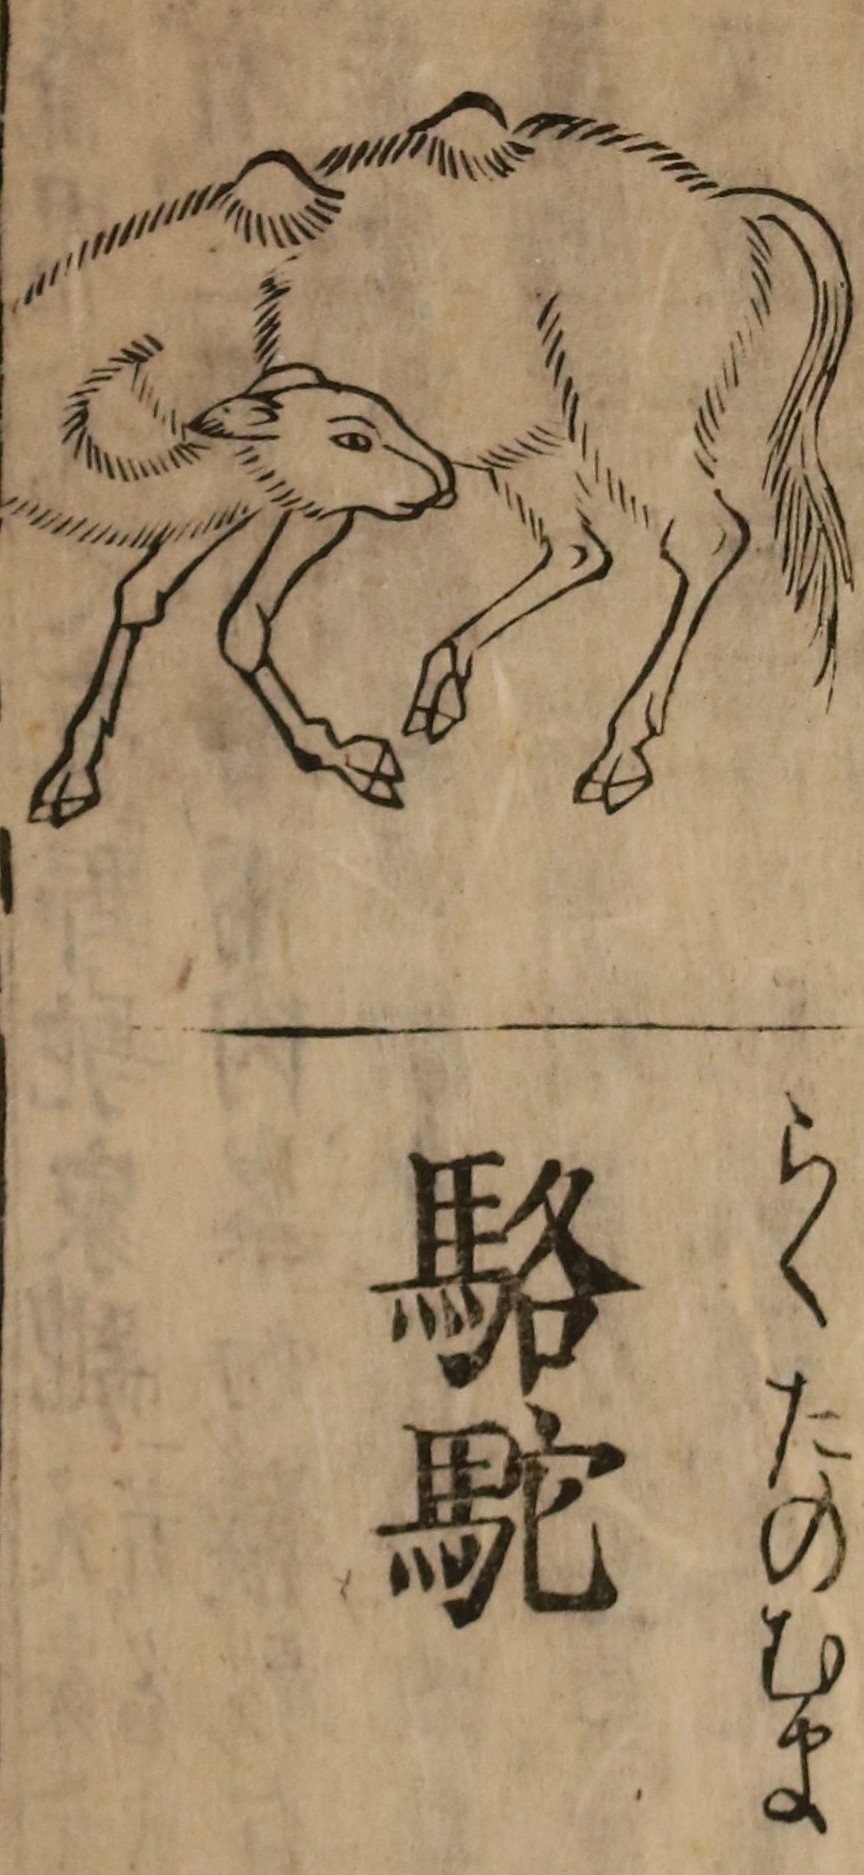 らくたのむま
駱駝